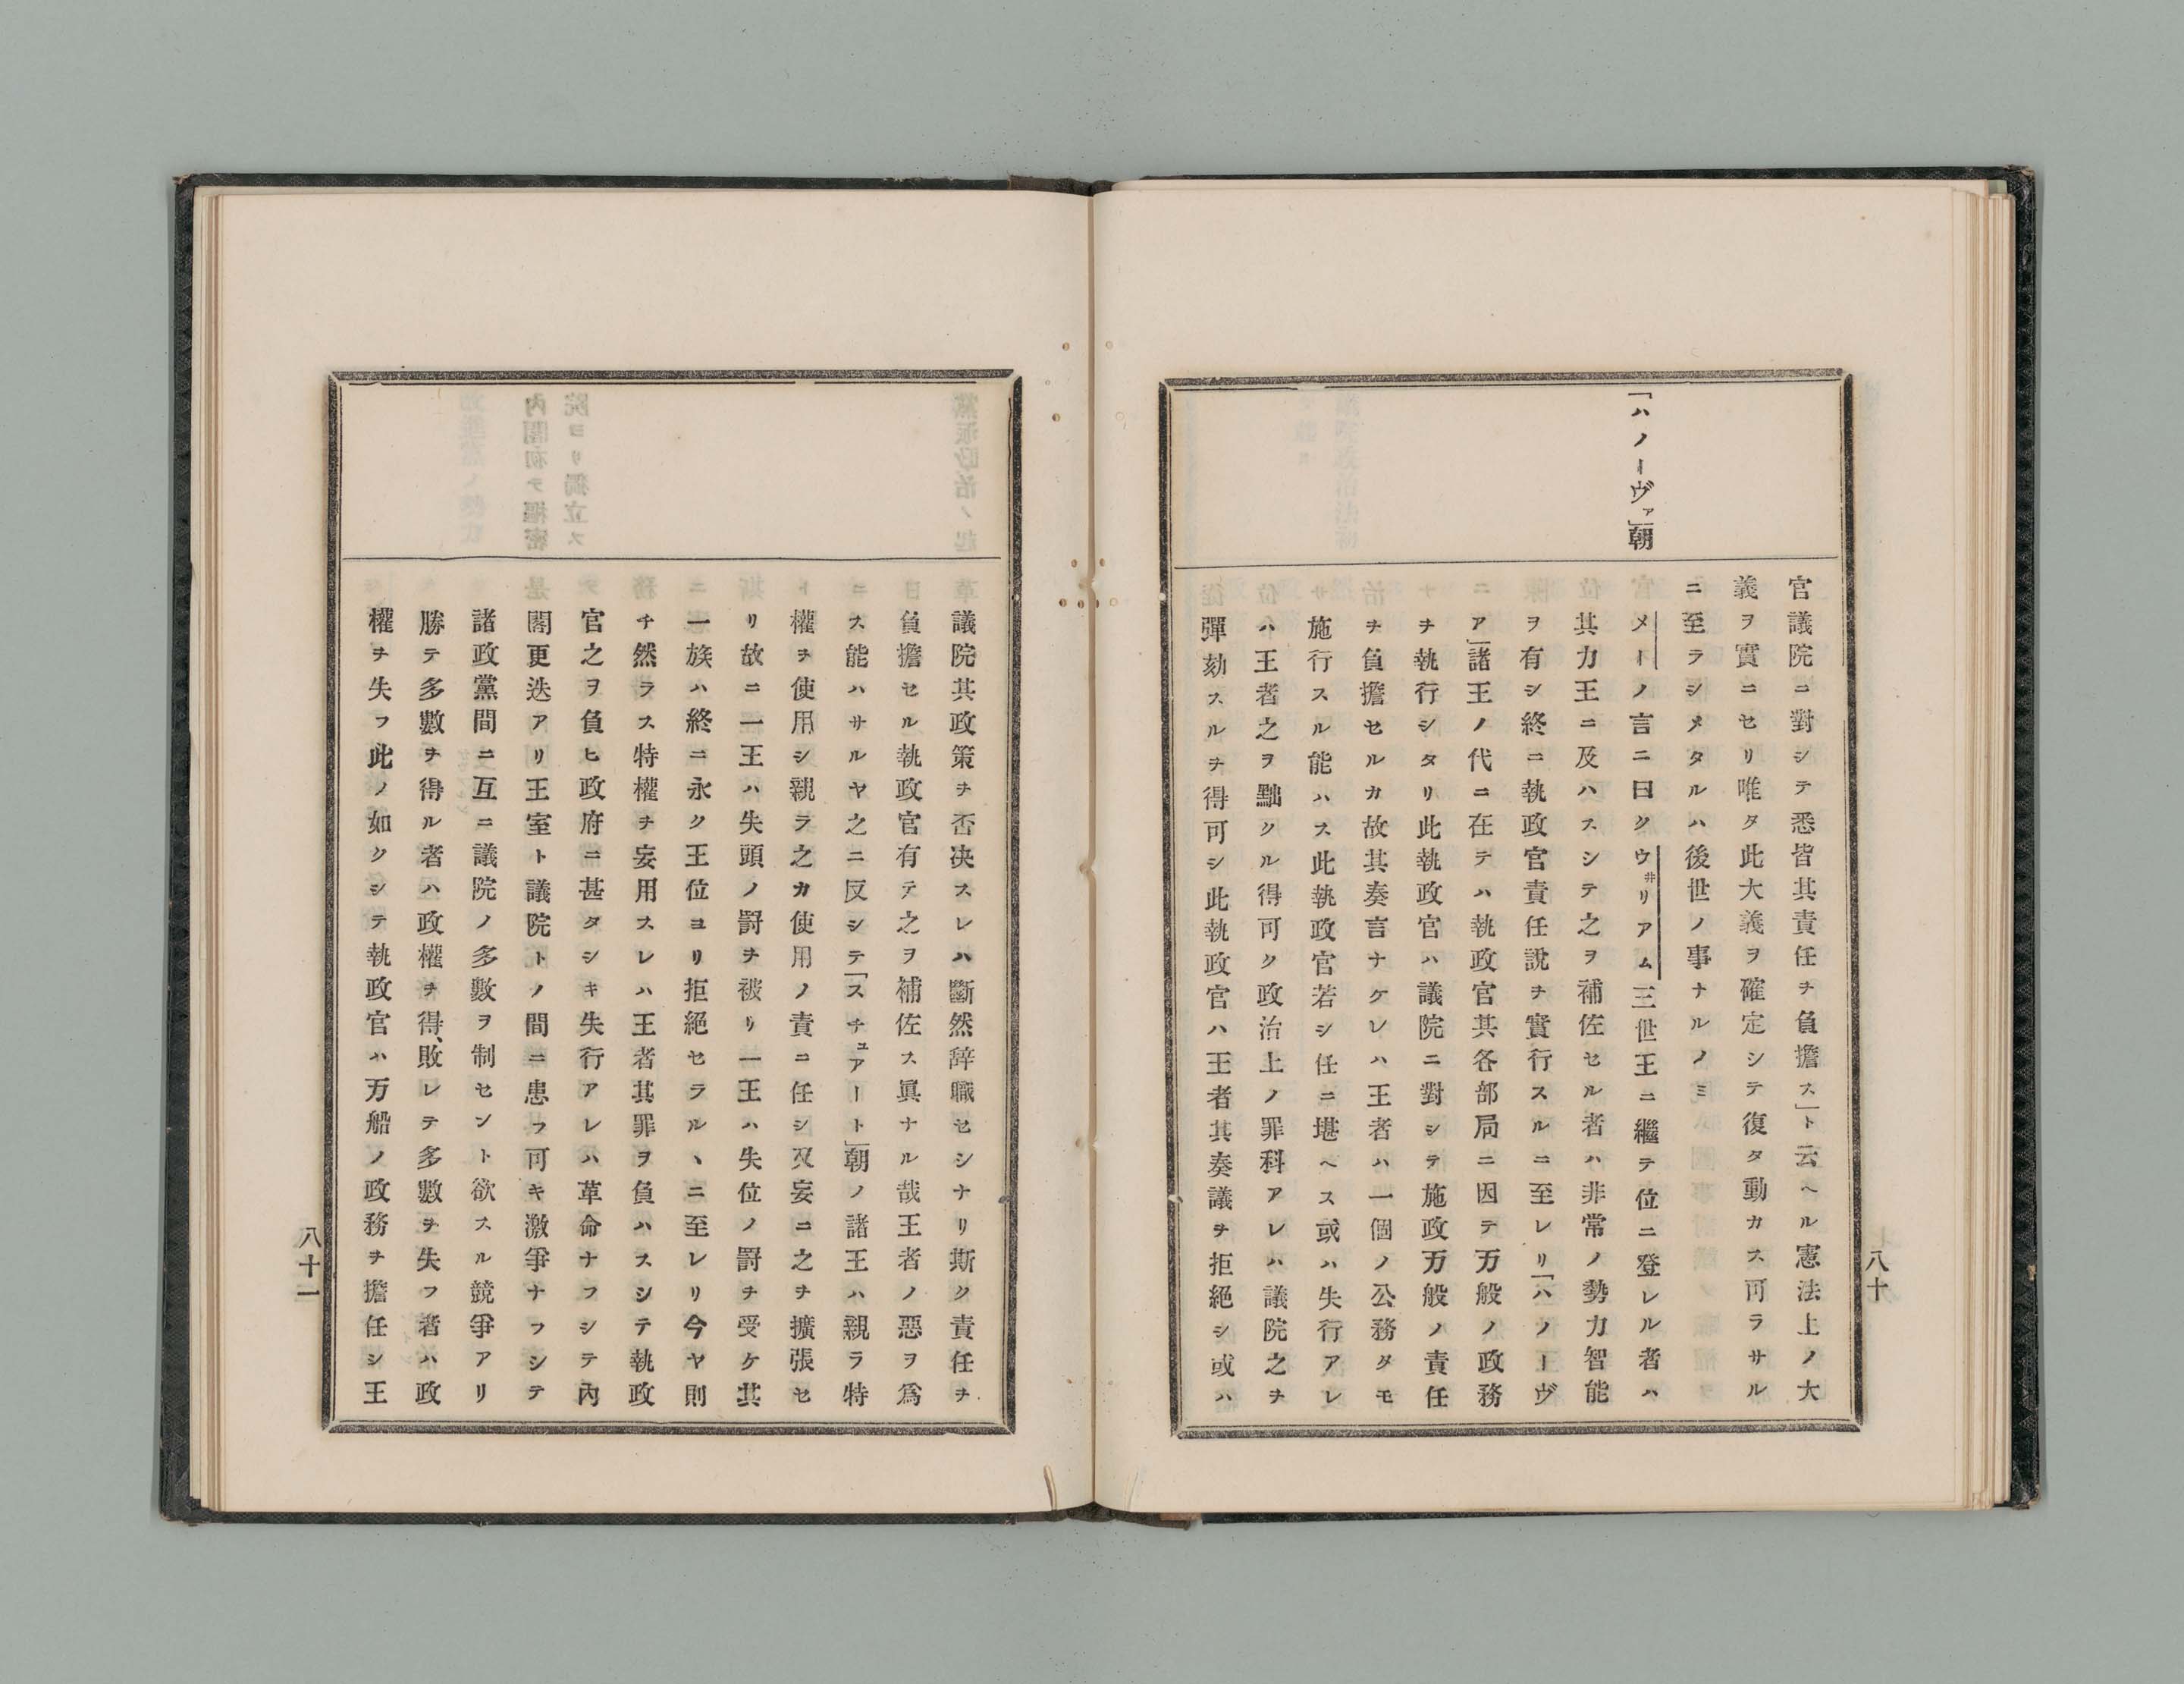 「ハノーヴァ」朝
官議院ニ對シテ悉皆其責任ヲ負擔ス」ト云ヘル憲法上ノ大
義ヲ實ニセリ唯タ此大義ヲ確定シテ復タ動カス可ラサル
ニ至ラシメタルハ後世ノ事ナルノミ
メートノ言ニ曰クウ井リアム三世王ニ繼テ位ニ登レル者ハ
其力王ニ及ハスシテ之ヲ補佐セル者ハ非常ノ勢力智能
ヲ有シ終ニ執政官責任說ヲ實行スルニ至レリ「ハノーヴ
ア」諸王ノ代ニ在テハ執政官其各部局ニ因テ万般ノ政務
ヲ執行シタリ此執政官ハ議院ニ對シテ施政万般ノ責任
ヲ負擔セルカ故其奏言ナケレハ王者ハ一個ノ公務タモ
施行スル能ハス此執政官若シ任ニ堪ヘス或ハ失行アレ
ハ王者之ヲ黜クル得可ク政治上ノ罪科アレハ議院之ヲ
彈劾スルヲ得可シ此執政官ハ王者其奏議ヲ拒絕シ或ハ
八十
議院其政策ヲ否决スレハ斷然辞職セシナリ斯ク責任ヲ
負擔セル執政官有テ之ヲ補佐ス眞ナル哉王者ノ惡ヲ爲
ス能ハサルヤ之ニ反シテ「スチュアート」朝ノ諸王ハ親ラ特
權ヲ使用シ親ラ之カ使用ノ責ニ任シ又妄ニ之ヲ擴張セ
リ故ニ一王ハ失頭ノ罸ヲ被リ一王ハ失位ノ罸ヲ受ケ其
一族ハ終ニ永ク王位ヨリ拒絕セラルヽニ至レリ今ヤ則
チ然ラス特權ヲ妄用スレハ王者其罪ヲ負ハスシテ執政
官之ヲ負ヒ政府ニ甚タシキ失行アレハ革命ナフシテ內
閣更迭アリ王室ト議院トノ間ニ患フ可キ激爭ナフシテ
諸政黨間ニ互ニ議院ノ多數ヲ制セント欲スル競爭アリ
勝テ多數ヲ得ル者ハ政權ヲ得、敗レテ多數ヲ失フ者ハ政
權ヲ失フ此ノ如クシテ執政官ハ万船ノ政務ヲ擔任シ王
八十一